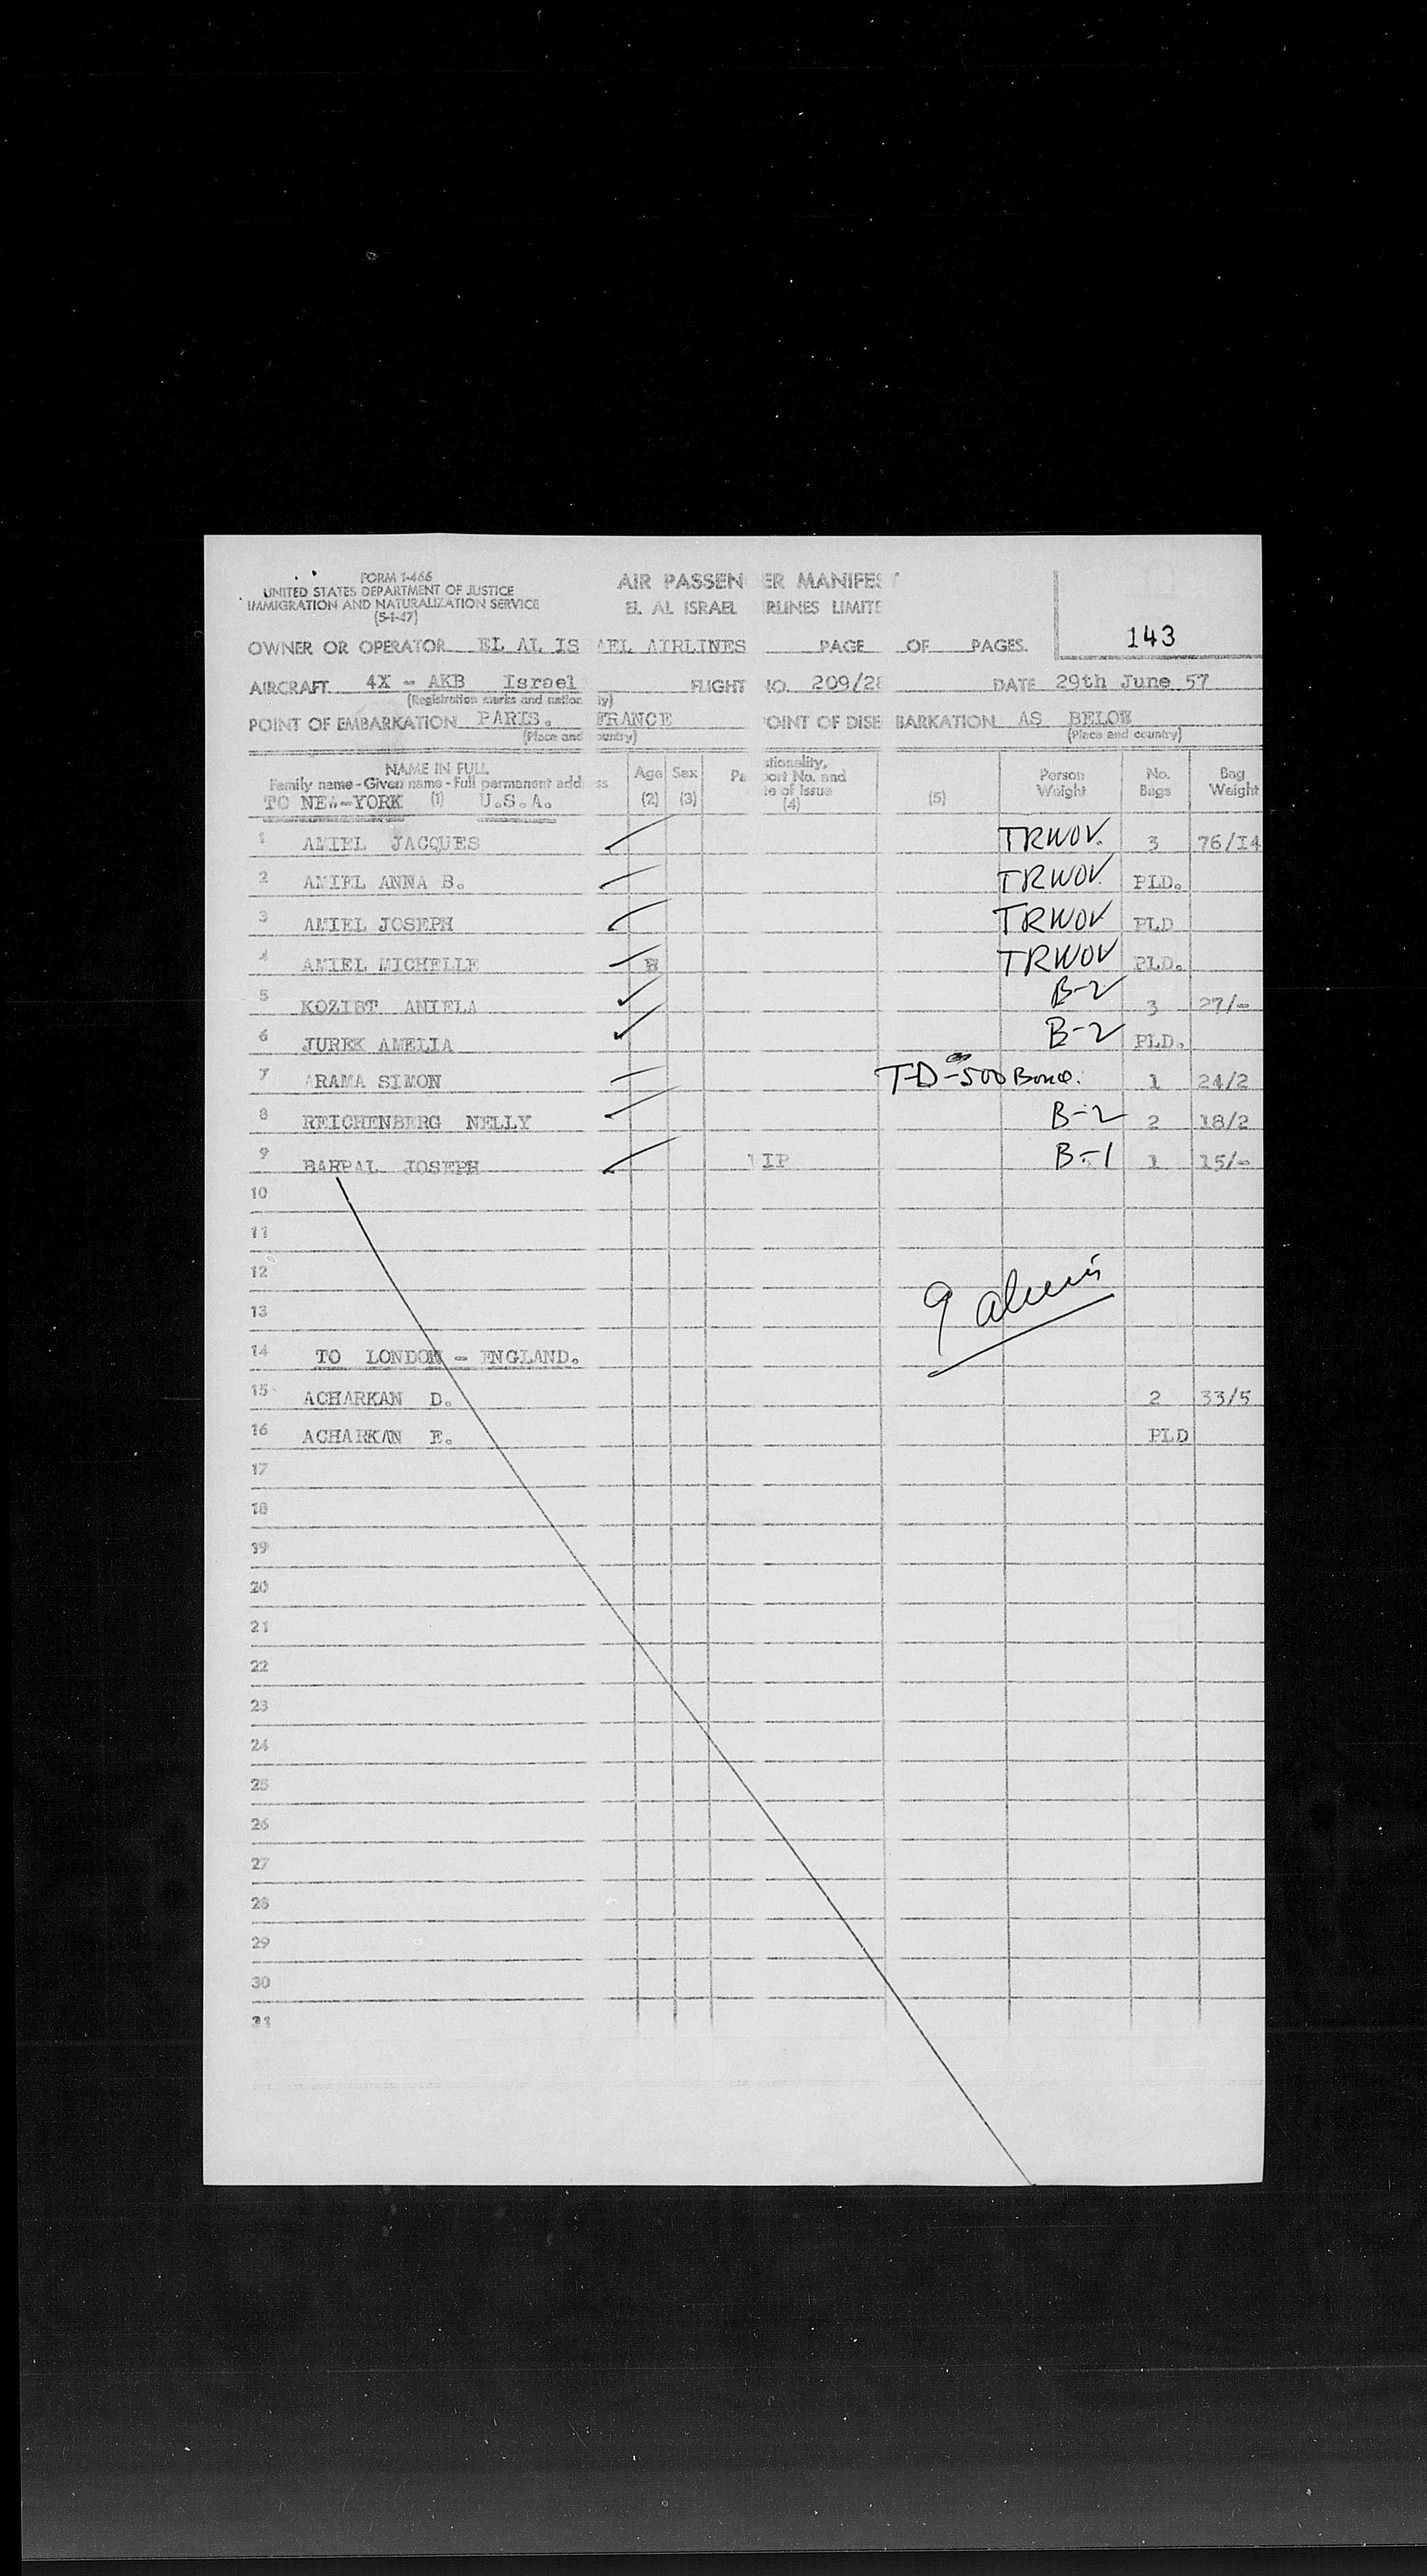 FORM 1-466
UNITED STATES DEPARTMENT OF JUSTICE
IMMIGRATION AND NATURALIZATION SERVICE
(5-1-47)
AIR PASSEN ER MANIFES
EL AL ISRAEL RLINES LIMITE
143
OWNER OR OPERATOR EL AL IS AEL AIRLINES PAGE OF PAGES.
AIRCRAFT 4X - AKB Israel FLIGHT NO. 209/28 DATE 29th June 57
(Registration marks and nation ly)
POINT OF EMBARKATION PARIS. FRANCE OINT OF DISE BARKATION AS BELOW
(Place and ountry) (Place and country)
NAME IN FULL Age Sex tionality, Person No. Bag
Family name - Given name - Full permanent add ss Pa port No. and Weight Bags Weight
TO NEW-YORK (1) U.S.A. (2) (3) te of Issue (4) (5)
1 AMIEL JACQUES TRWOV. 3 76/14
2 AMIEL ANNA B. TRWOV. PLD.
3 AMIEL JOSEPH TRWOV PLD
4 AMIEL MICHELLE TRWOV PLD.
5 KOZIBT ANIELA B-2 3 27/-
6 JUREK AMELIA B-2 PLD.
7 ARAMA SIMON T-D-500 Bond. 1 24/2
8 REICHENBERG NELLY B-2 2 18/2
9 BARPAL JOSEPH IP B-1 1 15/-
10
11
12
9 aliens
13
14 TO LONDON - ENGLAND.
15 ACHARKAN D. 2 33/5
16 ACHARKAN E. PLD
17
18
19
20
21
22
23
24
25
26
27
28
29
30
31